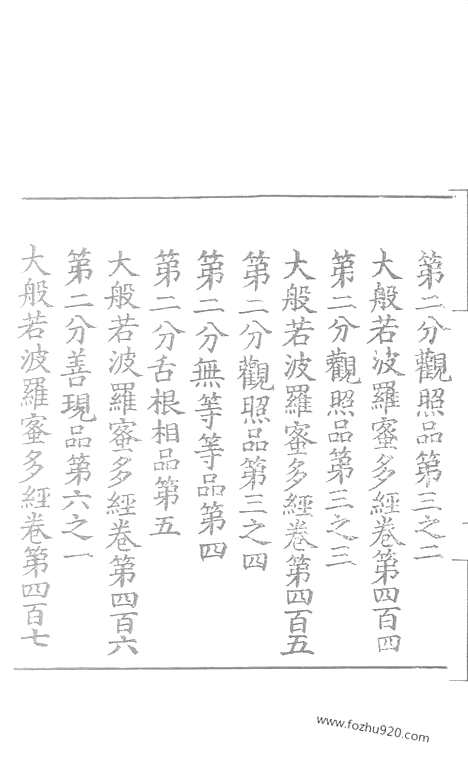 第二分觀照品第三之二
大般若波羅蜜多經卷第四百四
第二分觀照品第三之三
大般若波羅蜜多經卷第四百五
第二分觀照品第三之四
第二分無等等品第四
第二分舌根相品第五
大般若波羅蜜多經卷第四百六
第二分善現品第六之一
大般若波羅蜜多經卷第四百七
www.fozhu920.com